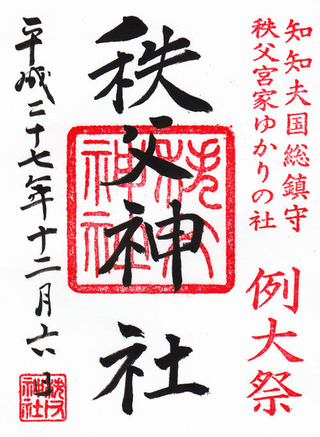 知知夫国総鎮守
秩父宮家ゆかりの社
例大祭
秩父神社
平成二十七年十二月六日
秩父
神社
秩父
神社